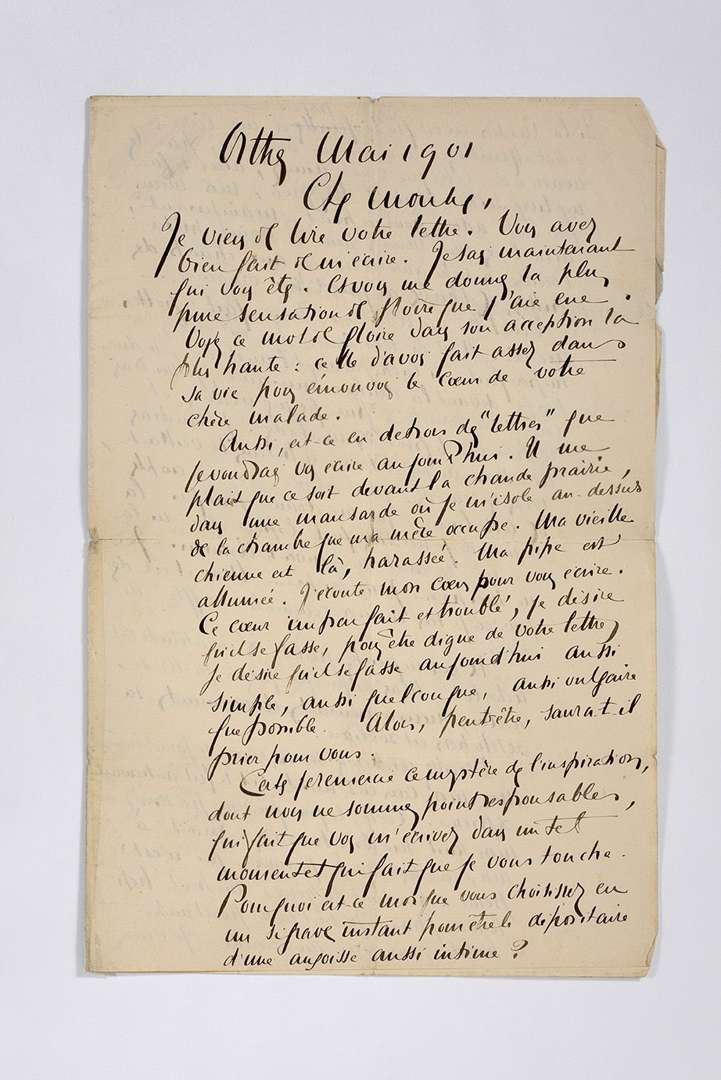 Orthez Mai 1901
Cher Monsieur,
Je viens de lire votre lettre. Vous avez
bien fait de m'écrire. Je sais maintenant
qui vous êtes. Et vous me donnez la plus
pure sensation de gloire que j'aie eue.
Voyez ce mot de gloire dans son acception la
plus haute : celle d'avoir fait assez dans
sa vie pour émouvoir le cœur de votre
chère malade.
Aussi, est-ce en dehors des "lettres" que
je voudrais vous écrire aujourd'hui. Il me
plait que ce soit devant la chaude prairie,
dans une mansarde où je m'isole au-dessus
de la chambre que ma mère occupe. Ma vieille
chienne est là, harassée. Ma pipe est
allumée. J'écoute mon cœur pour vous écrire.
Ce cœur imparfait et troublé, je désire
qu'il se fasse, pour être digne de votre lettre,
je désire qu'il se fasse aujourd'hui aussi
simple, aussi quelconque, aussi vulgaire
que possible. Alors, peut-être, saura-t-il
prier pour vous.
Certes je remercie ce mystère de l'inspiration,
dont nous ne sommes point responsables,
qui fait que vous m'écrivez dans un tel
moment et qui fait que je vous touche.
Pourquoi est-ce moi que vous choisissez en
un si grave instant pour être le dépositaire
d'une angoisse aussi intime ?